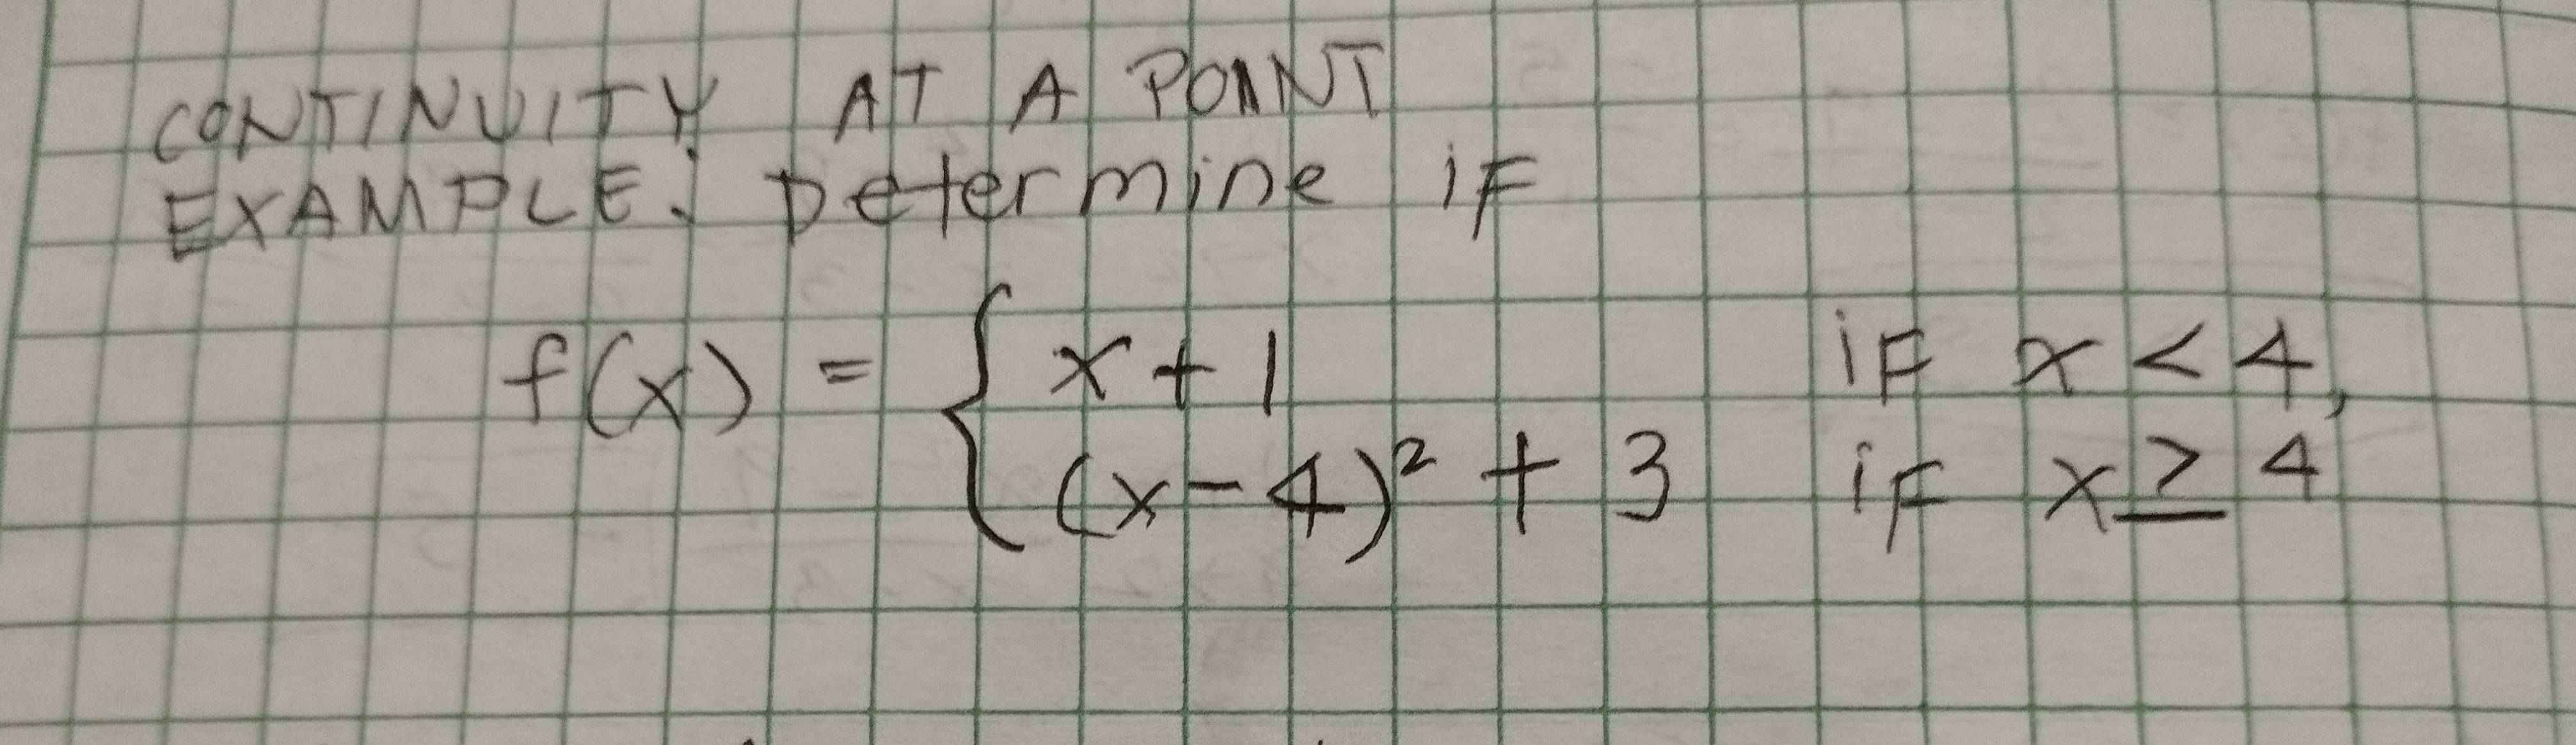 CONTINUITY AT A POINT
EXAMPLE: Determine if
f(x) = { x + 1 if x < 4,
(x - 4)² + 3 if x ≥ 4